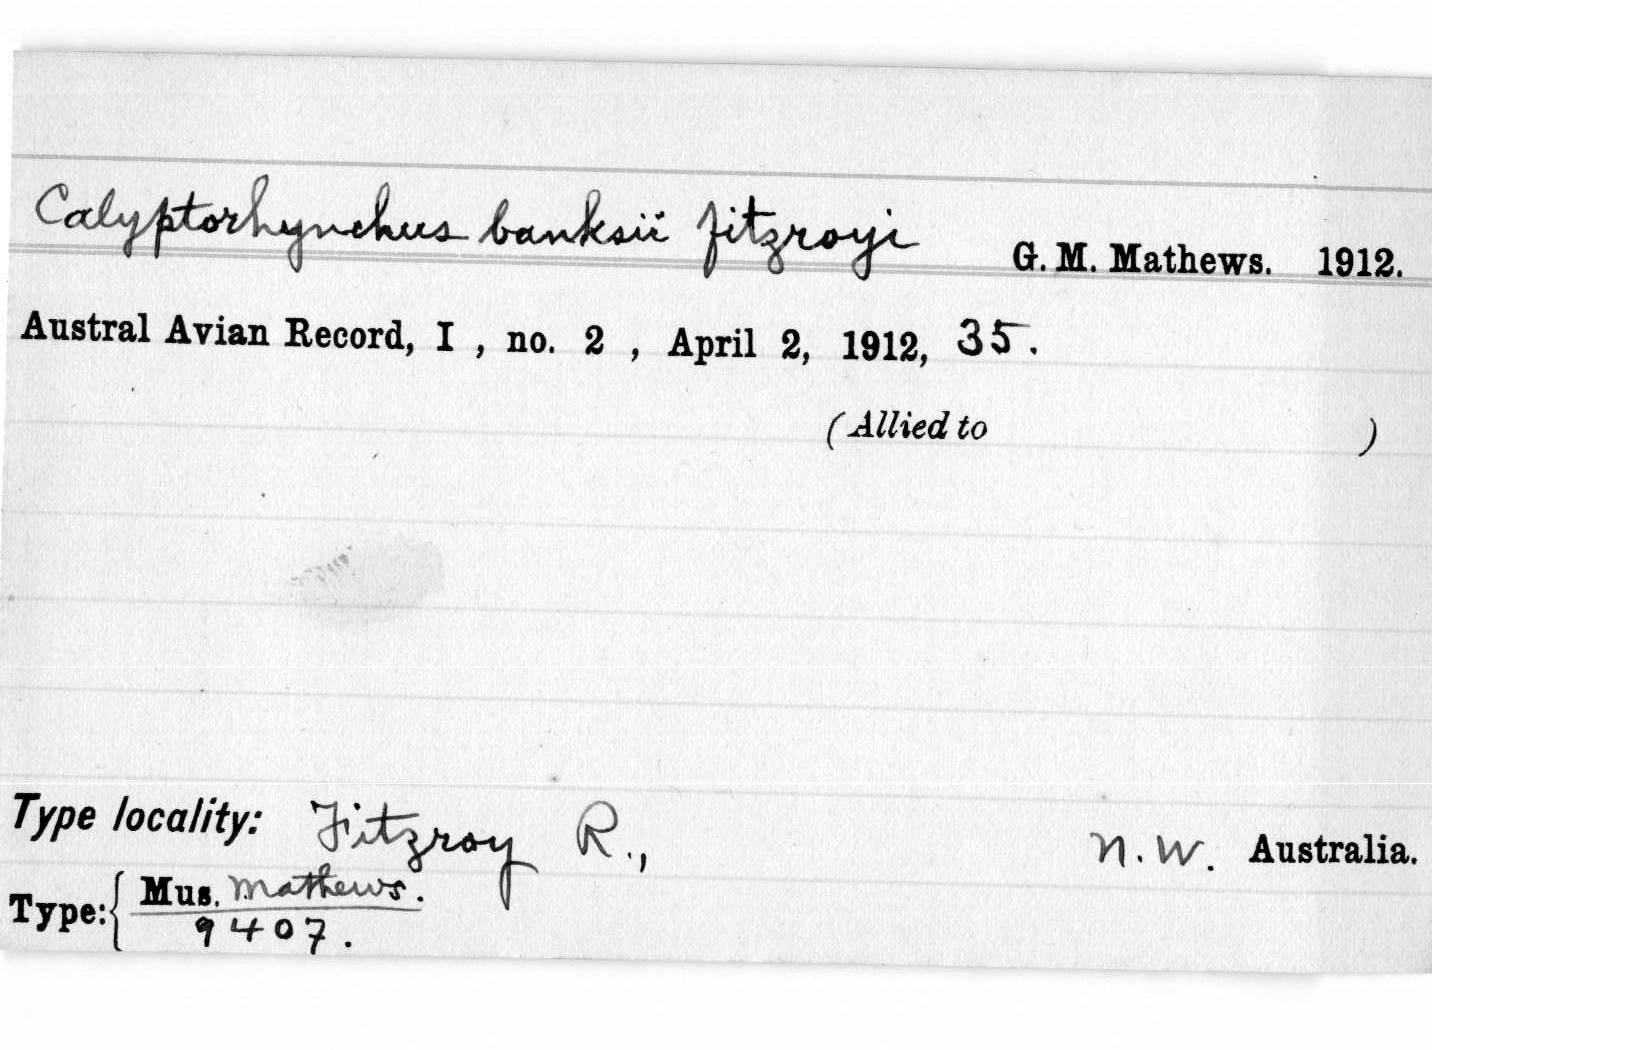 Calyptorhynchus banksii fitzroyi G. M. Mathews. 1912.
Austral Avian Record, I , no. 2 , April 2, 1912, 35.
(Allied to )
Type locality: Fitzroy R., N.W. Australia.
Type: { Mus. Mathews.
9407.